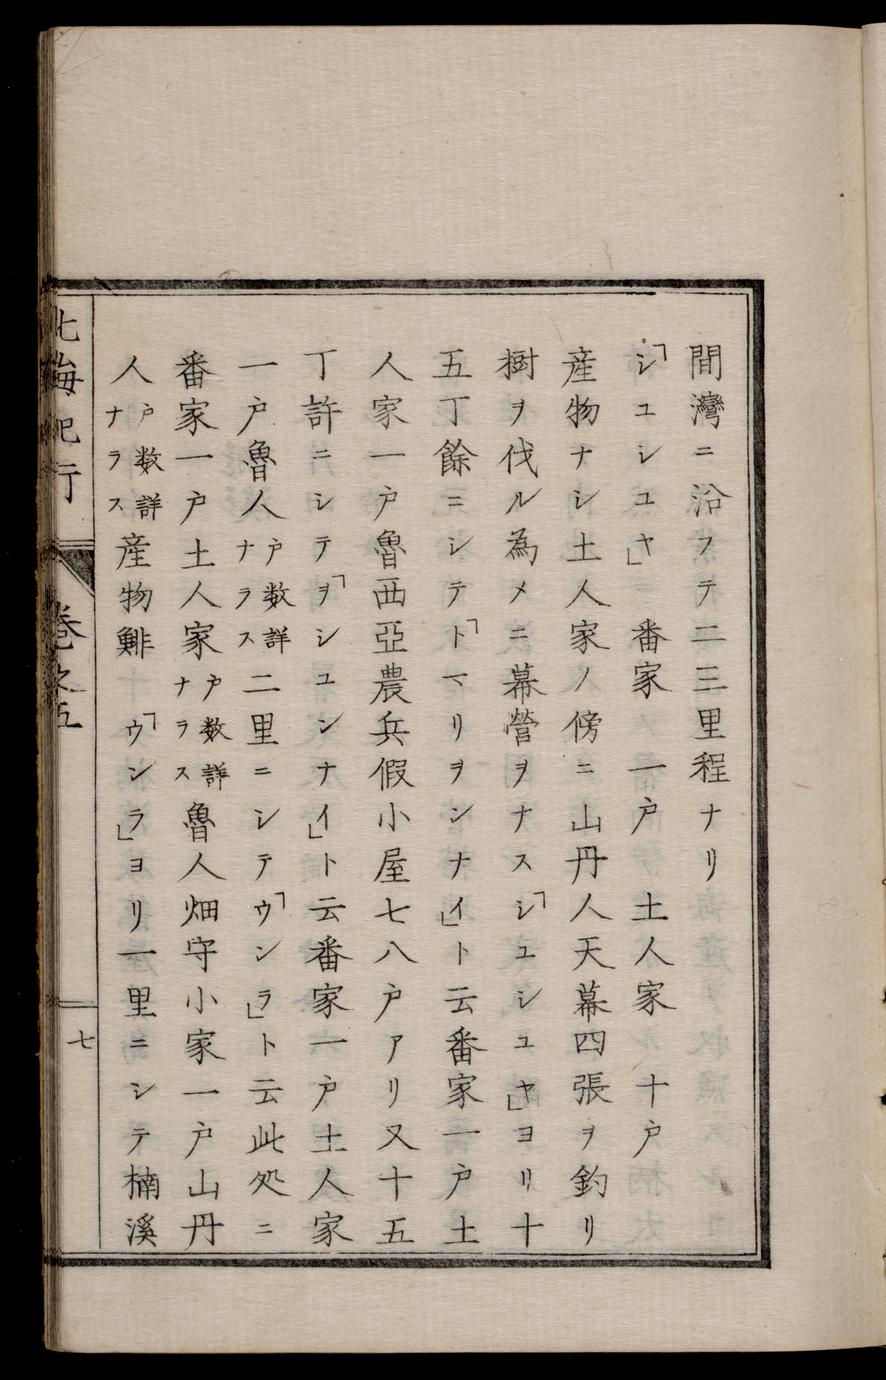 間灣ニ沿フテ二三里程ナリ
「シユシユヤ」番家一戸土人家十戸
産物ナシ土人家ノ傍ニ山丹人天幕四張ヲ釣リ
樹ヲ伐ル為メニ幕營ヲナス「シユシユヤ」ヨリ十
五丁餘ニシテ「トマリヲンナイ」ト云番家一戸土
人家一戸魯西亞農兵假小屋七八戸アリ又十五
丁許ニシテ「ヲシユンナイ」ト云番家一戸土人家
一戸魯人戸数詳ナラス二里ニシテ「ウンラ」ト云此処ニ
番家一戸土人家戸数詳ナラス魯人畑守小家一戸山丹
人戸数詳ナラス産物鯡「ウンラ」ヨリ一里ニシテ楠溪
北海紀行
巻之五
七